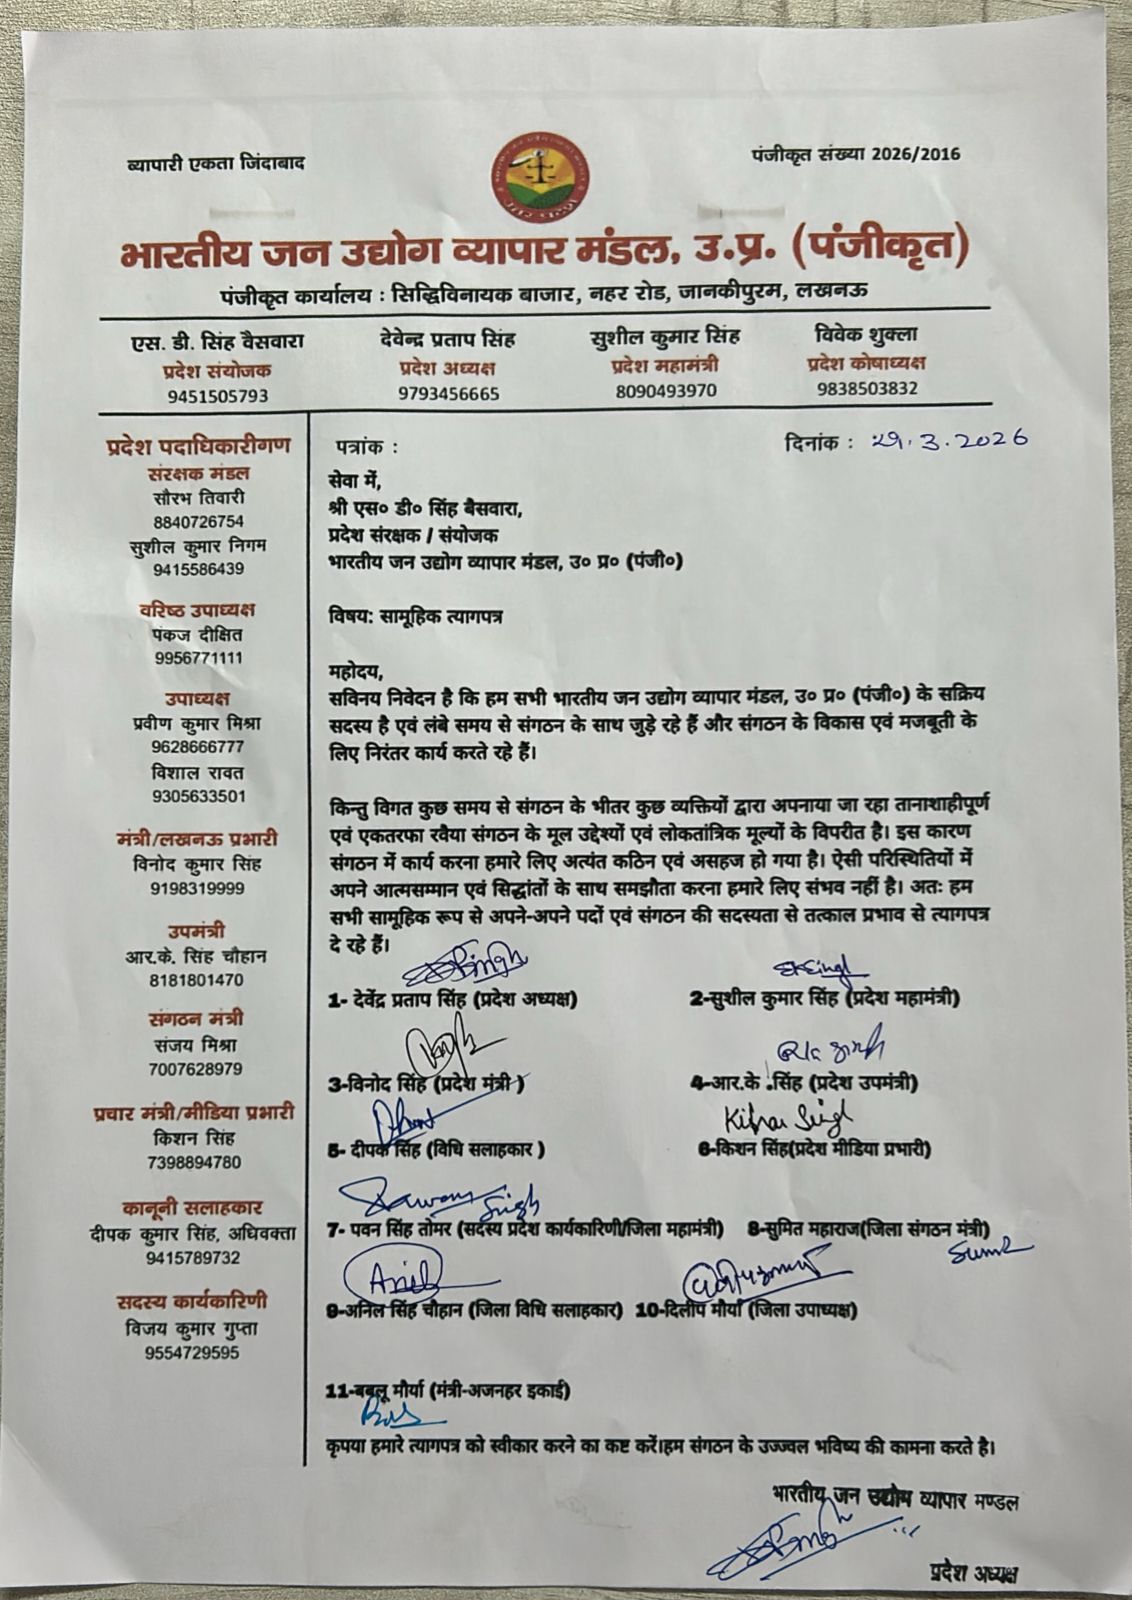 व्यापारी एकता जिंदाबाद
पंजीकृत संख्या 2026/2016
भारतीय जन उद्योग व्यापार मंडल, उ.प्र. (पंजीकृत)
पंजीकृत कार्यालय : सिद्धिविनायक बाजार, नहर रोड, जानकीपुरम, लखनऊ
एस. डी. सिंह वैसवारा
प्रदेश संयोजक
9451505793
देवेन्द्र प्रताप सिंह
प्रदेश अध्यक्ष
9793456665
सुशील कुमार सिंह
प्रदेश महामंत्री
8090493970
विवेक शुक्ला
प्रदेश कोषाध्यक्ष
9838503832
प्रदेश पदाधिकारीगण
संरक्षक मंडल
सौरभ तिवारी
8840726754
सुशील कुमार निगम
9415586439
वरिष्ठ उपाध्यक्ष
पंकज दीक्षित
9956771111
उपाध्यक्ष
प्रवीण कुमार मिश्रा
9628666777
विशाल रावत
9305633501
मंत्री/लखनऊ प्रभारी
विनोद कुमार सिंह
9198319999
उपमंत्री
आर.के. सिंह चौहान
8181801470
संगठन मंत्री
संजय मिश्रा
7007628979
प्रचार मंत्री/मीडिया प्रभारी
किशन सिंह
7398894780
कानूनी सलाहकार
दीपक कुमार सिंह, अधिवक्ता
9415789732
सदस्य कार्यकारिणी
विजय कुमार गुप्ता
9554729595
पत्रांक :
दिनांक : 29.3.2026
सेवा में,
श्री एस० डी० सिंह बैसवारा,
प्रदेश संरक्षक / संयोजक
भारतीय जन उद्योग व्यापार मंडल, उ० प्र० (पंजी०)
विषय: सामूहिक त्यागपत्र
महोदय,
सविनय निवेदन है कि हम सभी भारतीय जन उद्योग व्यापार मंडल, उ० प्र० (पंजी०) के सक्रिय
सदस्य है एवं लंबे समय से संगठन के साथ जुड़े रहे हैं और संगठन के विकास एवं मजबूती के
लिए निरंतर कार्य करते रहे हैं।
किन्तु विगत कुछ समय से संगठन के भीतर कुछ व्यक्तियों द्वारा अपनाया जा रहा तानाशाहीपूर्ण
एवं एकतरफा रवैया संगठन के मूल उद्देश्यों एवं लोकतांत्रिक मूल्यों के विपरीत है। इस कारण
संगठन में कार्य करना हमारे लिए अत्यंत कठिन एवं असहज हो गया है। ऐसी परिस्थितियों में
अपने आत्मसम्मान एवं सिद्धांतों के साथ समझौता करना हमारे लिए संभव नहीं है। अतः हम
सभी सामूहिक रूप से अपने-अपने पदों एवं संगठन की सदस्यता से तत्काल प्रभाव से त्यागपत्र
दे रहे हैं।
1- देवेंद्र प्रताप सिंह (प्रदेश अध्यक्ष)
2-सुशील कुमार सिंह (प्रदेश महामंत्री)
3-विनोद सिंह (प्रदेश मंत्री )
4-आर.के .सिंह (प्रदेश उपमंत्री)
Kishan Singh
5- दीपक सिंह (विधि सलाहकार )
6-किशन सिंह(प्रदेश मीडिया प्रभारी)
Pawan Singh
7- पवन सिंह तोमर (सदस्य प्रदेश कार्यकारिणी/जिला महामंत्री)
8-सुमित महाराज(जिला संगठन मंत्री)
Sumit
Anil
9-अनिल सिंह चौहान (जिला विधि सलाहकार)
10-दिलीप मौर्या (जिला उपाध्यक्ष)
11-बबलू मौर्या (मंत्री-अजनहर इकाई)
कृपया हमारे त्यागपत्र को स्वीकार करने का कष्ट करें।हम संगठन के उज्ज्वल भविष्य की कामना करते है।
भारतीय जन उद्योग व्यापार मण्डल
प्रदेश अध्यक्ष